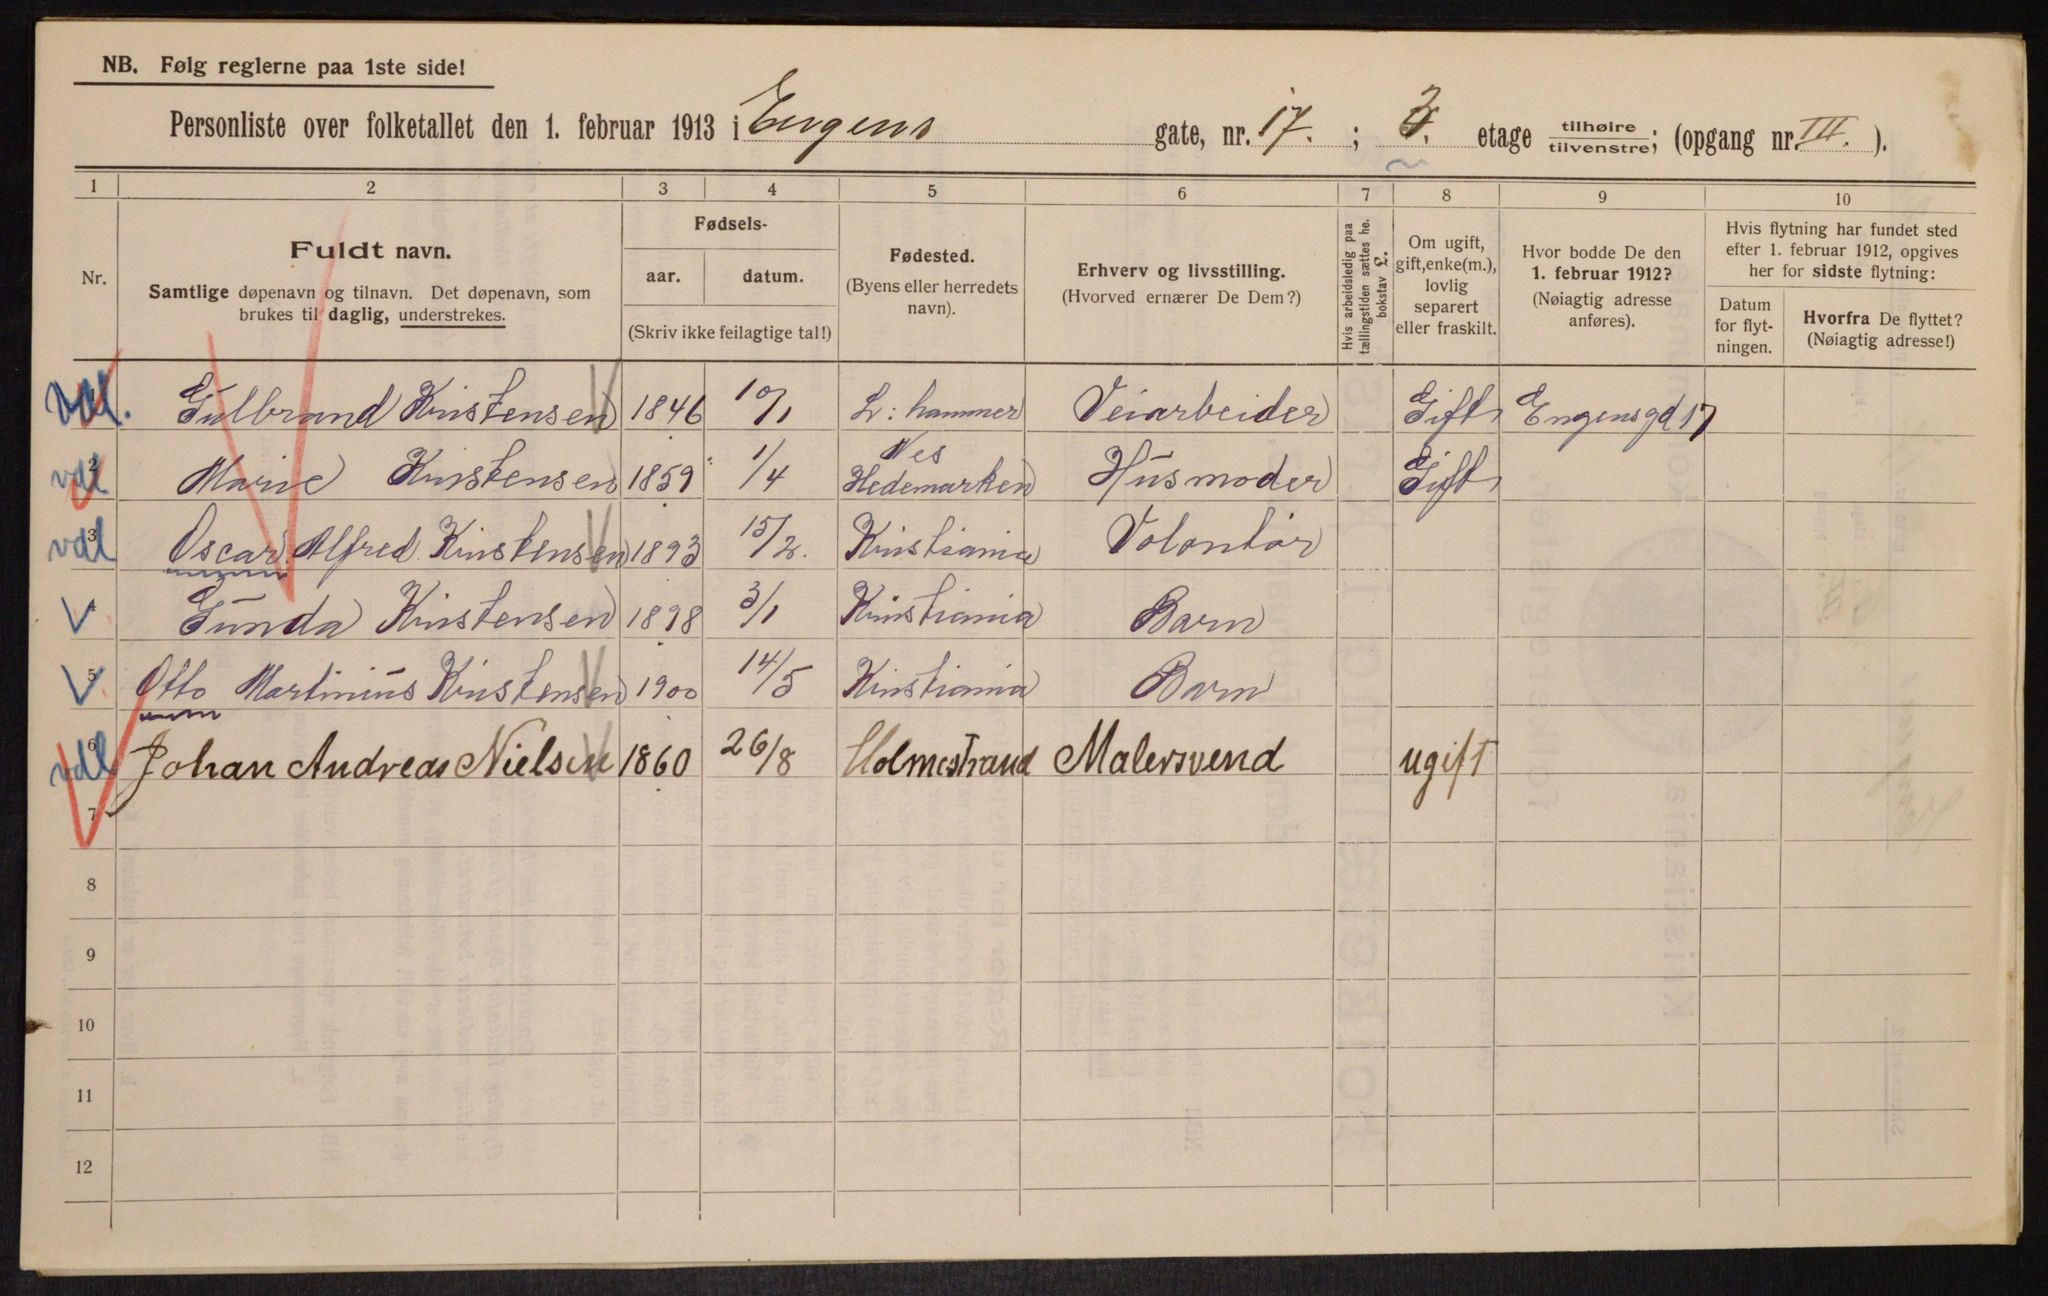 NB. Følg reglerne paa 1ste side!
Personliste over folketallet den 1. februar 1913 i Eugens gate, nr. 17. ; 3. etage tilhøire tilvenstre; (opgang nr. III. ).
1 2 3 4 5 6 7 8 9 10
Nr.
Fuldt navn.
Samtlige døpenavn og tilnavn. Det døpenavn, som
brukes til daglig, understrekes.
Fødsels-
aar. datum.
(Skriv ikke feilagtige tal!)
Fødested.
(Byens eller herredets
navn).
Erhverv og livsstilling.
(Hvorved ernærer De Dem?)
Hvis arbeidsledig paa
tællingstiden sættes he.
bokstav L.
Om ugift,
gift, enke(m.),
lovlig
separert
eller fraskilt.
Hvor bodde De den
1. februar 1912?
(Nøiagtig adresse
anføres).
Hvis flytning har fundet sted
efter 1. februar 1912, opgives
her for sidste flytning:
Datum
for flyt-
ningen.
Hvorfra De flyttet?
(Nøiagtig adresse!)
vdl. Gulbrand Kristensen 1846 10/1 L: hammer Veiarbeider Gift Engensgd 17
vdl 2 Marie Kristensen 1859 1/4 Nes Hedemarken Husmoder Gift
vdl 3 Oscar Alfred Kristensen 1893 15/2. Kristiania Volontør
4 Gunda Kristensen 1898 3/1 Kristiania Barn
5 Otto Martinius Kristensen 1900 14/5 Kristiania Barn
vdl 6 Johan Andreas Nielsen 1860 26/8 Holmestrand Malersvend ugift
7
8
9
10
11
12